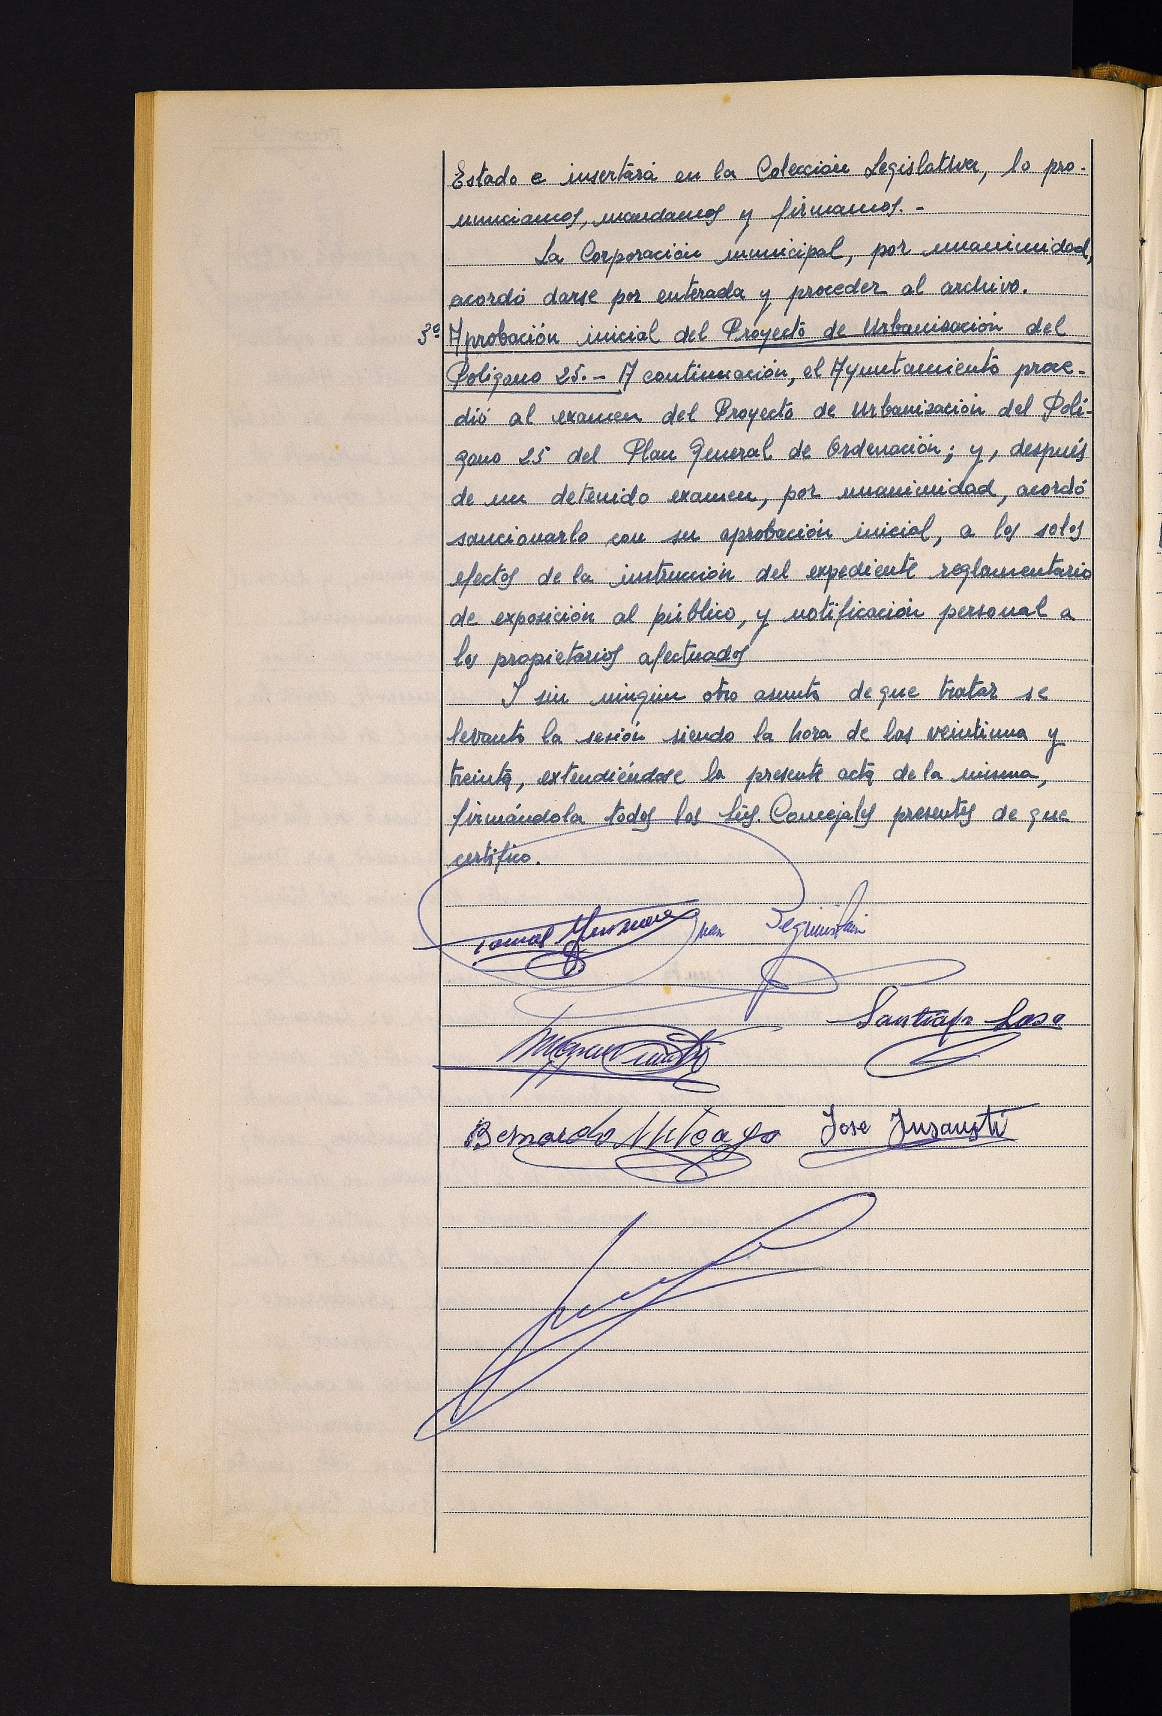 Estado e insertará en la Colección Legislativa, lo pro-
nunciamos, mandamos y firmamos.-
La Corporación municipal, por unanimidad,
acordó darse por enterada y proceder al archivo.
3º Aprobación inicial del Proyecto de Urbanización del
Polígono 25.- A continuación, el Ayuntamiento proce-
dió al examen del Proyecto de Urbanización del Polí-
gono 25 del Plan General de Ordenación; y, después
de un detenido examen, por unanimidad, acordó
sancionarlo con su aprobación inicial, a los solos
efectos de la instrucción del expediente reglamentario
de exposición al público, y notificación personal a
los propietarios afectuados
Y sin ningún otro asunto de que tratar se
levanto la sesión siendo la hora de las veintiuna y
treinta, extendiéndose la presente acta de la misma,
firmándola todos los Srs. Concejales presentes de que
certifico.
Juan Beguiristain
Santiago Lasa
Bernardo
Jose Insausti